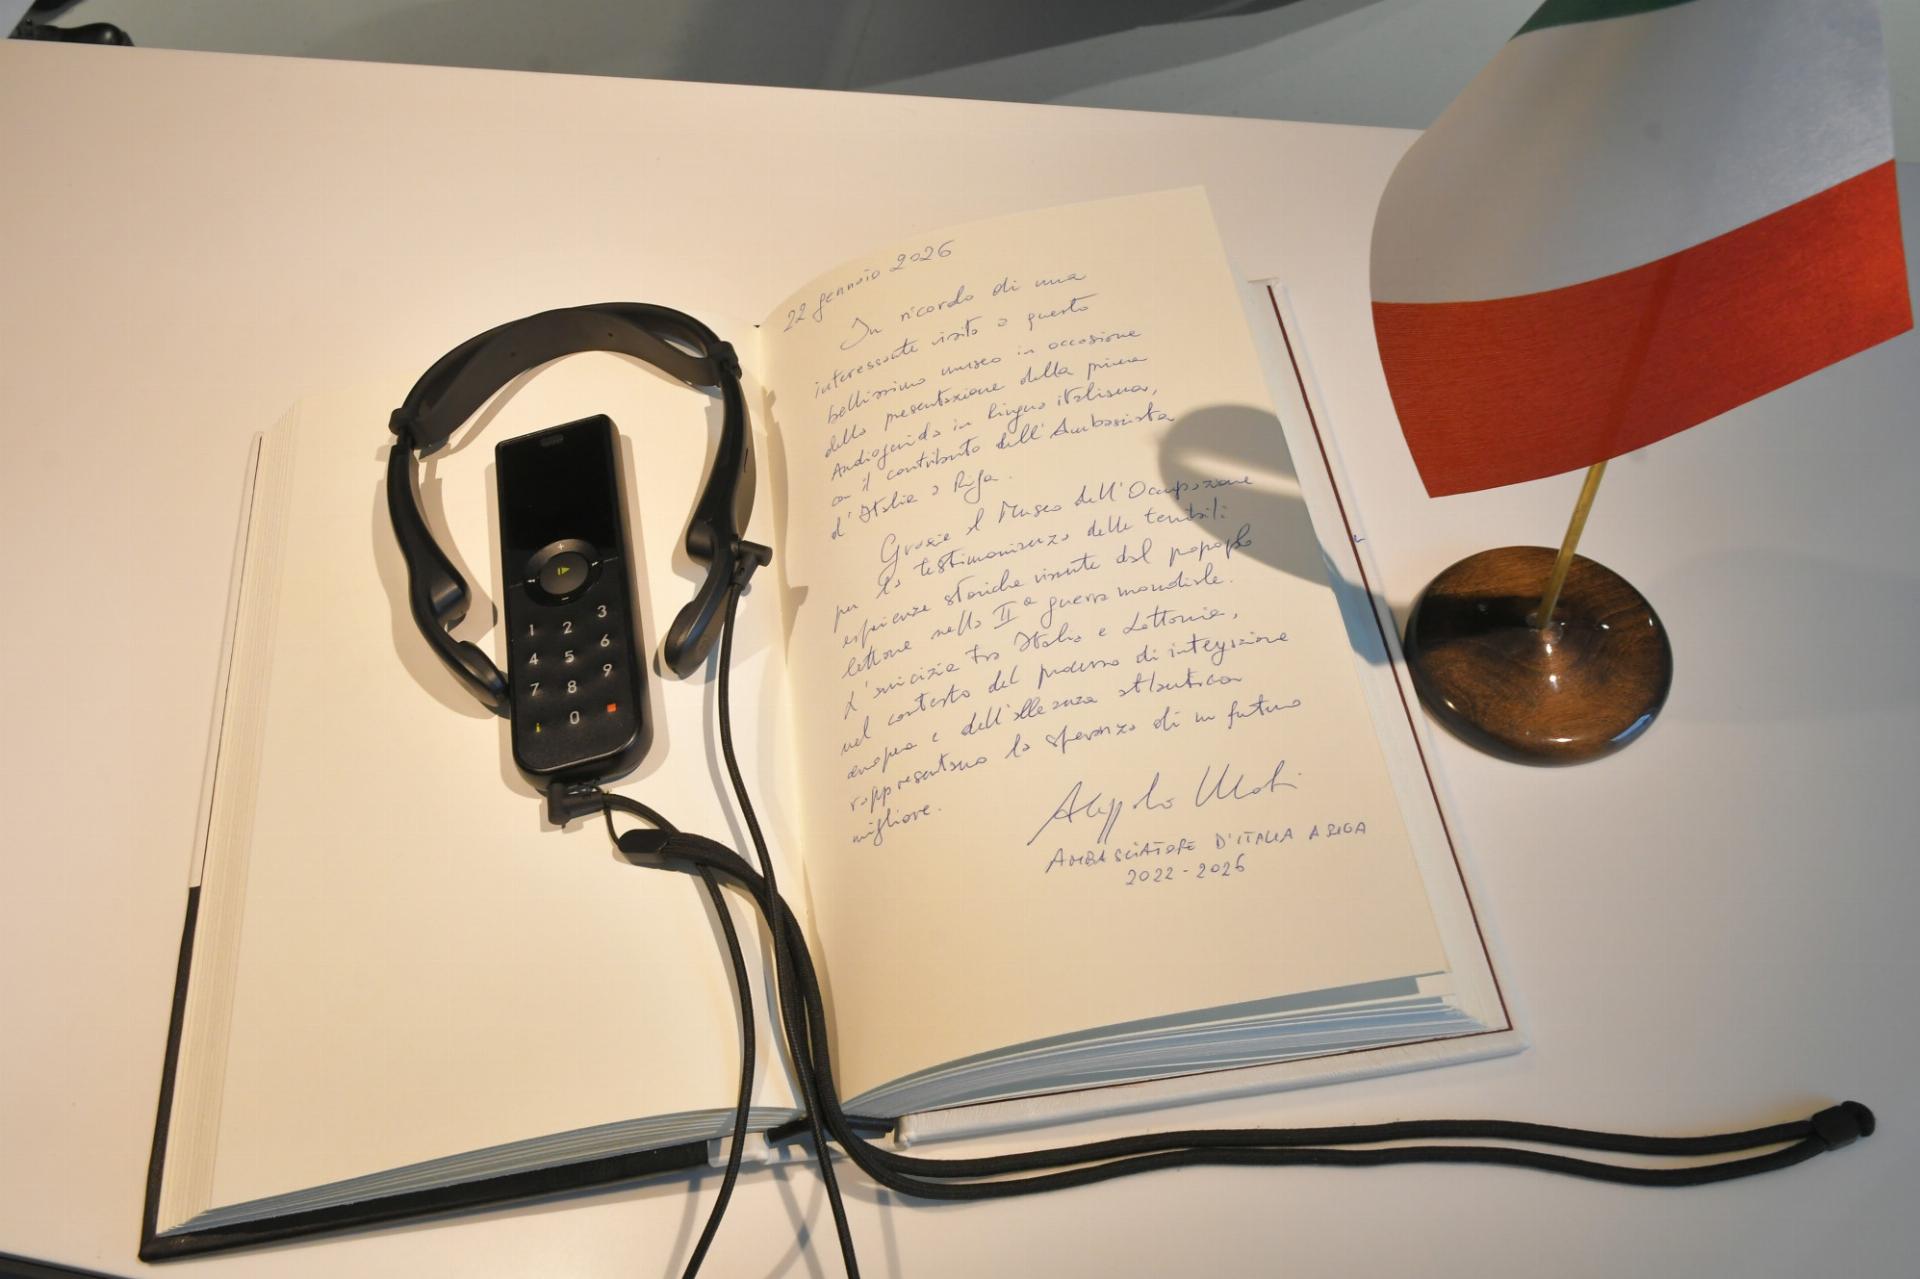 22 gennaio 2026
In ricordo di una
interessante visita a questo
bellissimo museo in occasione
della presentazione della prima
Audioguida in lingua italiana,
con il contributo dell'Ambasciata
d'Italia a Riga.
Grazie al Museo dell'Occupazione
per la testimonianza delle terribili
esperienze storiche vissute dal popolo
lettone nella IIa guerra mondiale.
L'amicizia tra Italia e Lettonia,
nel contesto del processo di integrazione
europea e dell'alleanza atlantica
rappresentano la speranza di un futuro
migliore.
AMBASCIATORE D'ITALIA A RIGA
2022-2026
1 2 3
4 5 6
7 8 9
0